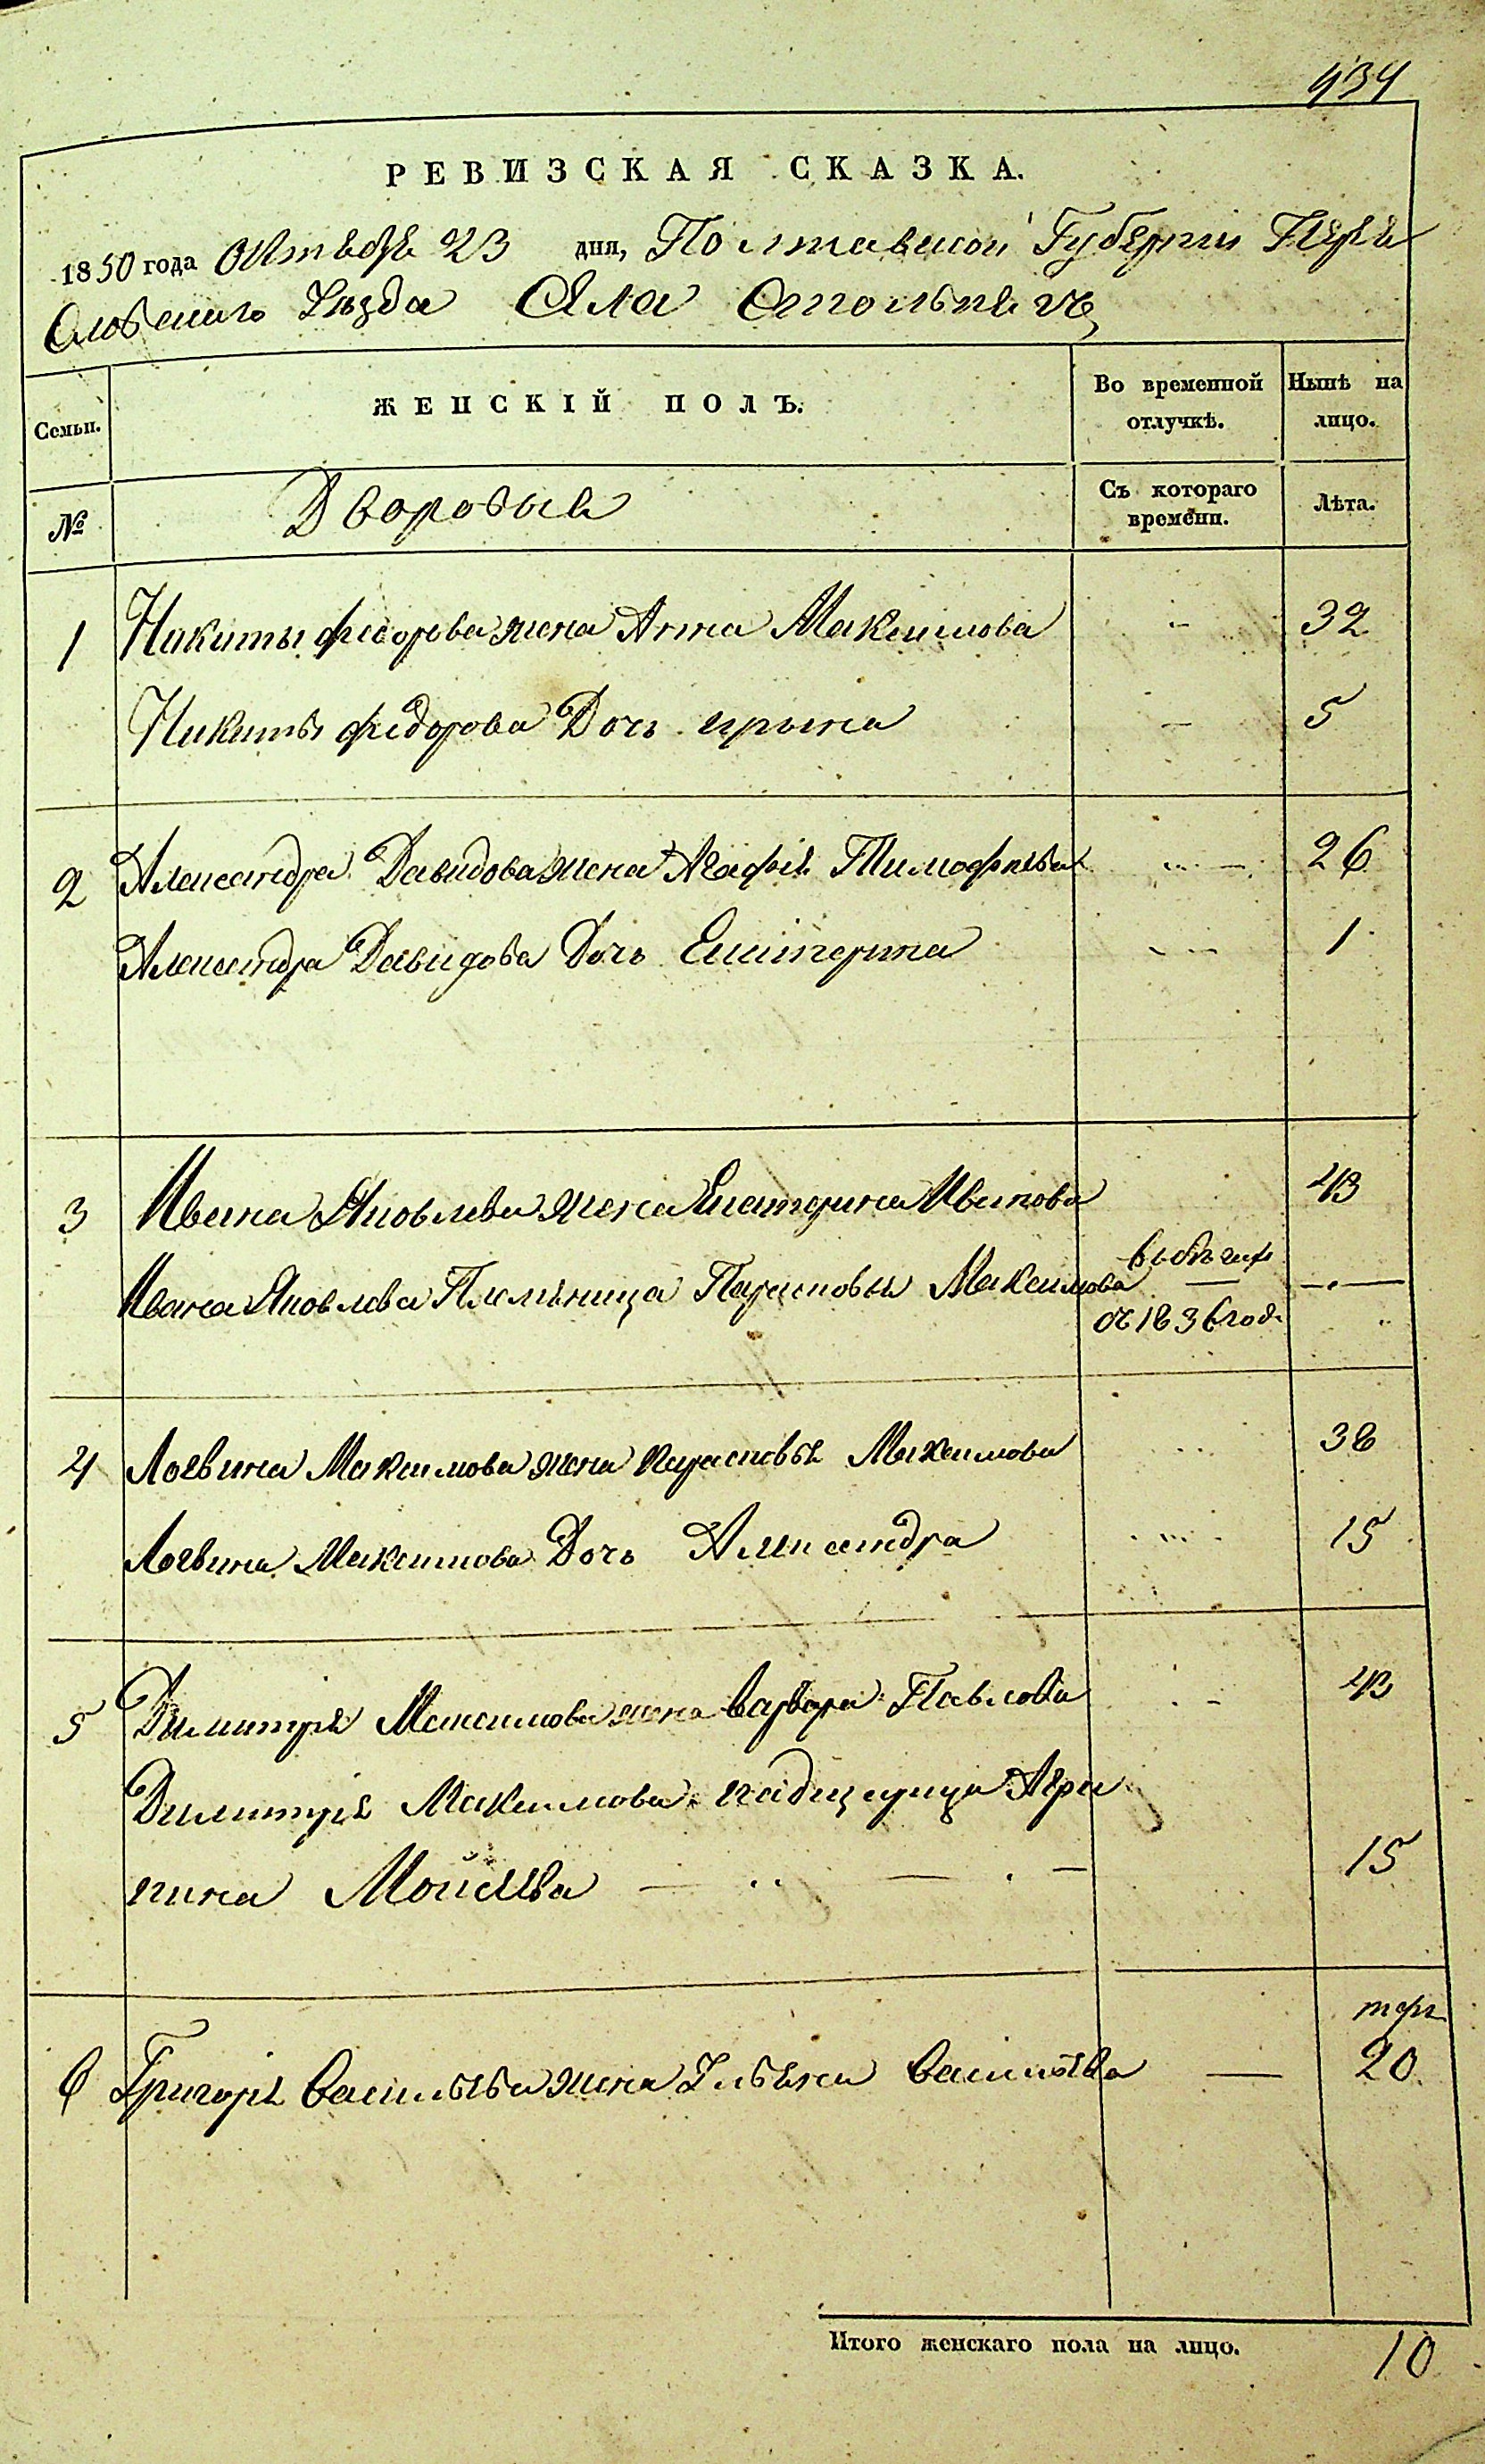 434
РЕВИЗСКАЯ СКАЗКА.
1850 года Октебре 23 дня, Полтавской Губернии Пере
Словского Уезда Села Столпегъ
Семьи.
ЖЕНСКІЙ ПОЛЪ.
Во временной отлучкѣ.
Нынѣ на лицо.
№
Дворовые
Съ котораго времени.
Лѣта.
1 Никиты Федорова жена Анна Максимова - 32
Никиты Федорова Дочь ирына - 5
2 Александра Давидова жена Агафіе Тимофеева 26
Александра Давидова Дочь Екатерина 1
3 Ивана Яковлева жена Екатерина Иванова 43
Ивана Яковлева Племеница Парасковья Максимова в побеге —
съ 1836 год.
4 Логвина Максимова жена парасковья Максимова 38
Логвина Максимова Дочь Александра 15
5 Димитрія Максимова жена варвара Павлова - 43
Димитріе Максимова падщерица Агри
пина Мойсеева 15
6 Григоріе Васильева жена Ульяна Васильева — 20
Итого женскаго пола на лицо. 10